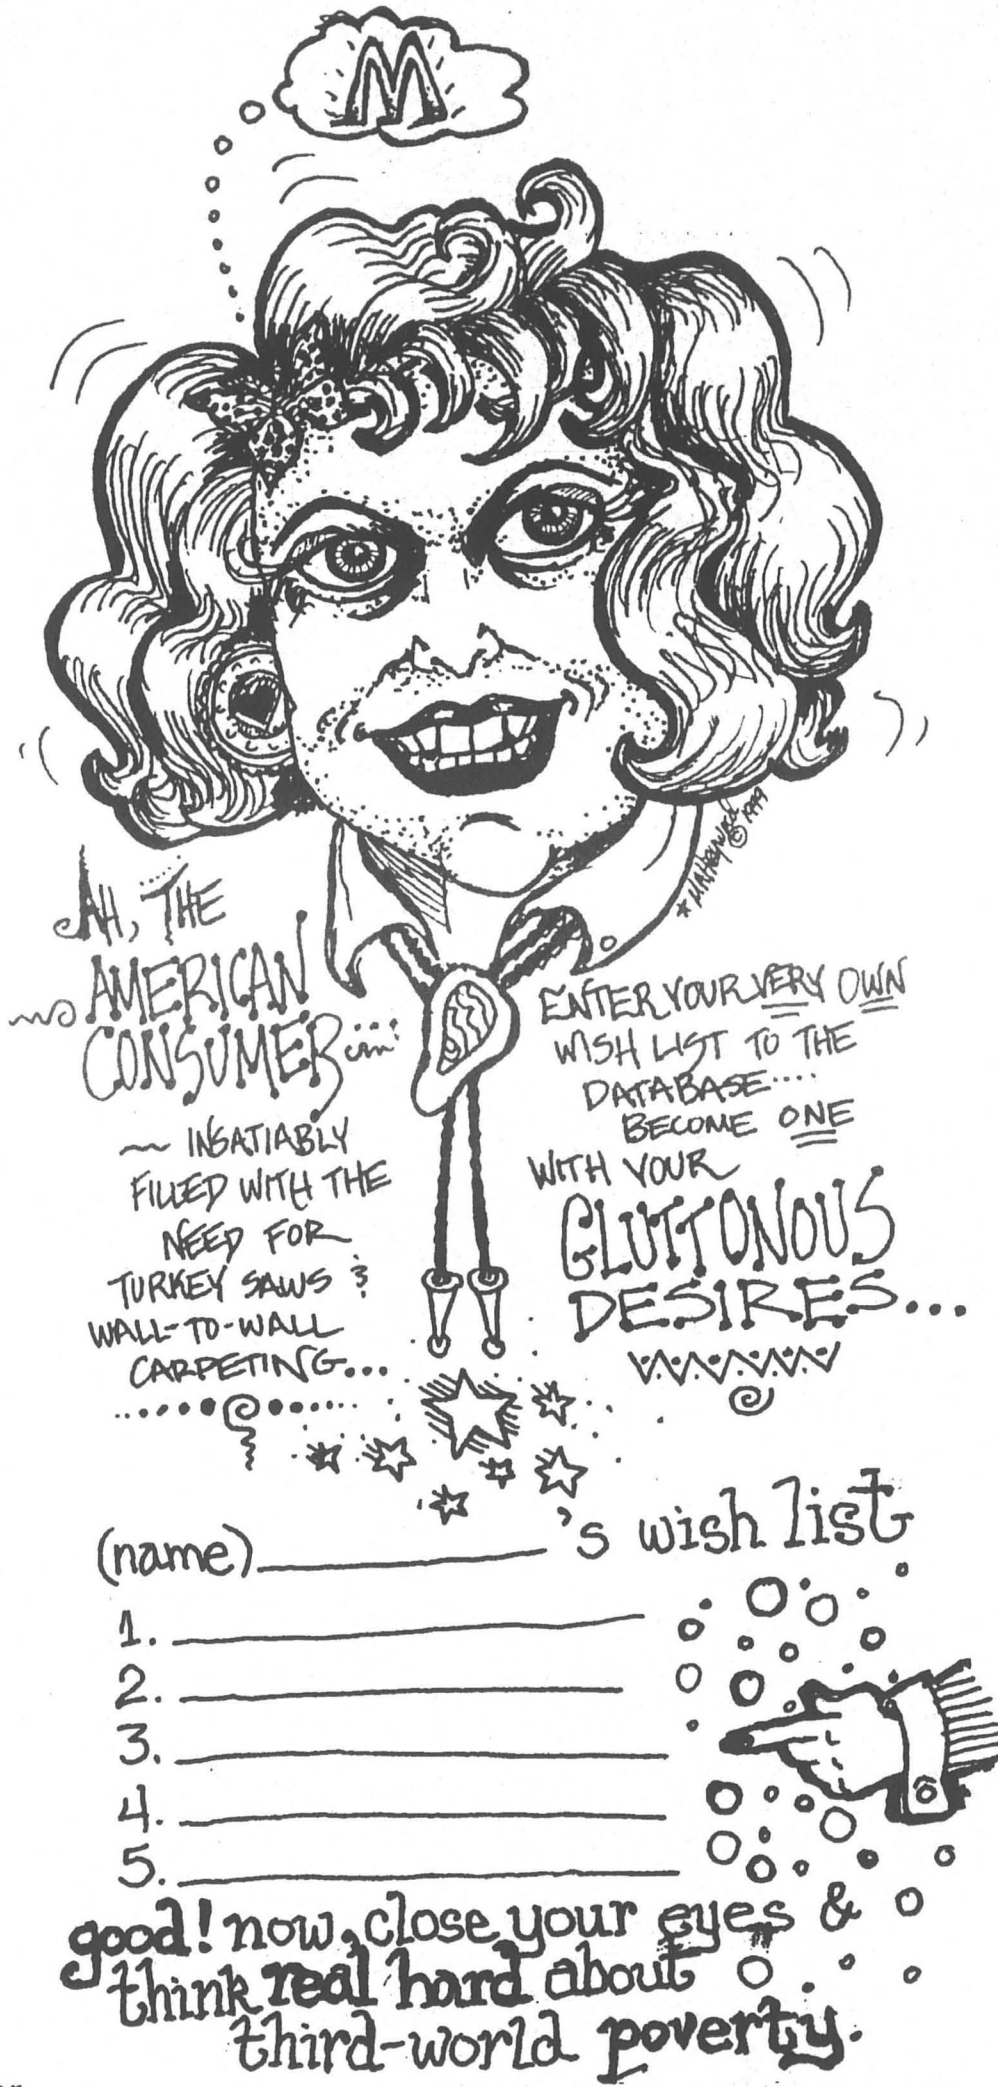 M
© 1999
AH, THE
AMERICAN
CONSUMER....
~ INSATIABLY
FILLED WITH THE
NEED FOR
TURKEY SAWS &
WALL-TO-WALL
CARPETING...
ENTER YOUR VERY OWN
WISH LIST TO THE
DATABASE....
BECOME ONE
WITH YOUR
GLUTTONOUS
DESIRES...
(name) 's wish list
1.
2.
3.
4.
5.
good! now, close your eyes &
think real hard about
third-world poverty.